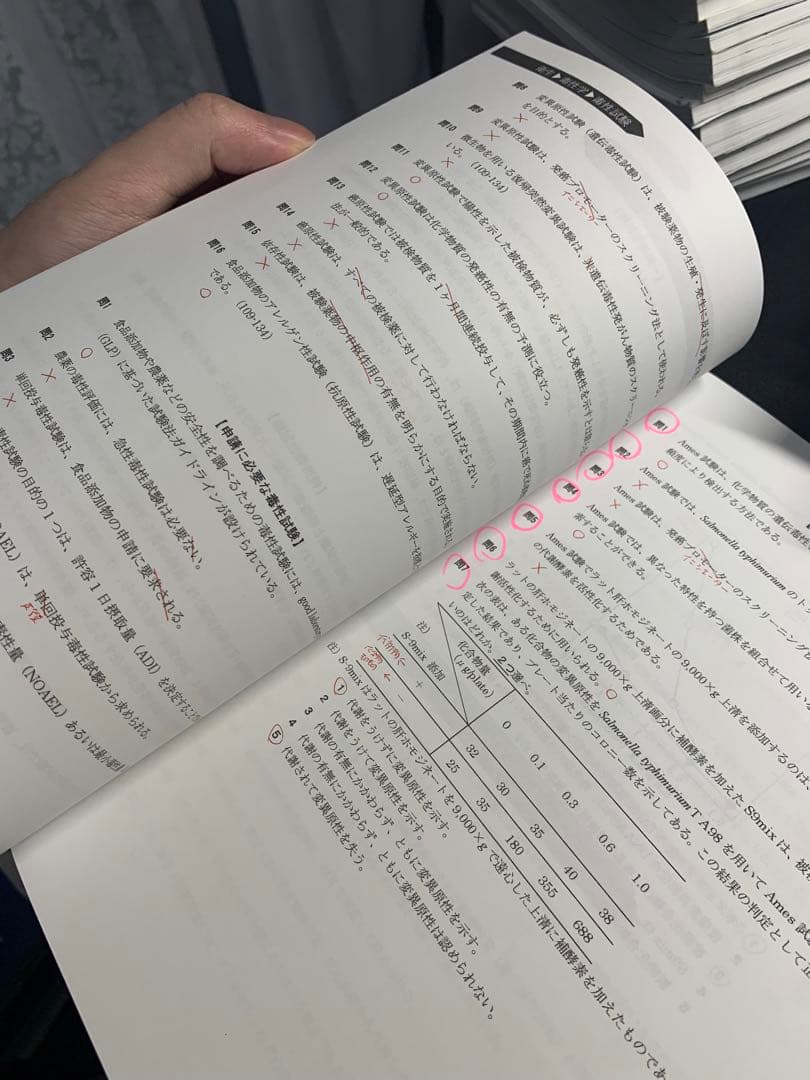 衛生▶毒性学▶毒性試験
問8 変異原性試験（遺伝毒性試験）は、被験薬物の生殖・発生に及ぼす影響
を目的とする。
×
問9 変異原性試験は、発癌プロモーターのスクリーニング法として使われ
×
イニシエーター
問10 微生物を用いる復帰突然変異試験は、非遺伝毒性発がん物質のスクリーニ
いる。(109-134)
×
問11 変異原性試験で陽性を示した被検物質が、必ずしも発癌性を示すとは限
○
問12 変異原性試験は化学物質の発癌性の有無の予測に役立つ。
○
問13 癌原性試験では被検物質を1ヶ月間連続投与して、その期間内に
法が一般的である。
×
問14 癌原性試験は、すべての被検薬に対して行わなければならない。
×
問15 依存性試験は、被験薬物の中枢作用の有無を明らかにする目的で実施され
×
問16 食品添加物のアレルゲン性試験（抗原性試験）は、遅延型アレルギーを
である。(109-134)
○
【申請に必要な毒性試験】
問1 食品添加物や農薬などの安全性を調べるための毒性試験には、good laborato
(GLP) に基づいた試験法ガイドラインが設けられている。
○
問2 農薬の毒性評価には、急性毒性試験は必要ない。
×
問3 単回投与毒性試験は、食品添加物の申請に要求される。
×
性試験の目的の1つは、許容1日摂取量（ADI）を決定すること
AEL）は、単回投与毒性試験から求められる。
反復
毒性量（NOAEL）あるいは最小毒性
問1 Ames 試験は、化学物質の遺伝毒性
頻度により検出する方法である。
○
問2 Ames 試験では、Salmonella typhimurium のト
×
問3 Ames 試験は、発癌プロモーターのスクリーニング
×
イニシエーター
問4 Ames 試験では、異なった特性を持つ菌株を組合せて用い
索することができる。
○
問5 Ames 試験でラット肝ホモジネートの9,000×g 上清を添加するのは、
の代謝酵素を活性化するためである。
×
問6 ラットの肝ホモジネートの9,000×g 上清画分に補酵素を加えた S9mix は、被
謝活性化するために用いられる。○
問7 次の表は、ある化合物の変異原性を Salmonella typhimurium TA98 を用いて Ames 試
定した結果であり、プレート当たりのコロニー数を示してある。この結果の判定として正
いのはどれか。2つ選べ。
化合物量 (μg/plate) 0 0.1 0.3 0.6 1.0
注) S-9mix 添加 + 32 30 35 40 38
− 25 35 180 355 688
注) S-9mix はラットの肝ホモジネートを 9,000×g で遠心した上清に補酵素を加えたものであ
1 代謝をうけずに変異原性を示す。
2 代謝をうけて変異原性を示す。
3 代謝の有無にかかわらず、ともに変異原性を示す。
4 代謝の有無にかかわらず、ともに変異原性は認められない。
5 代謝されて変異原性を失う。